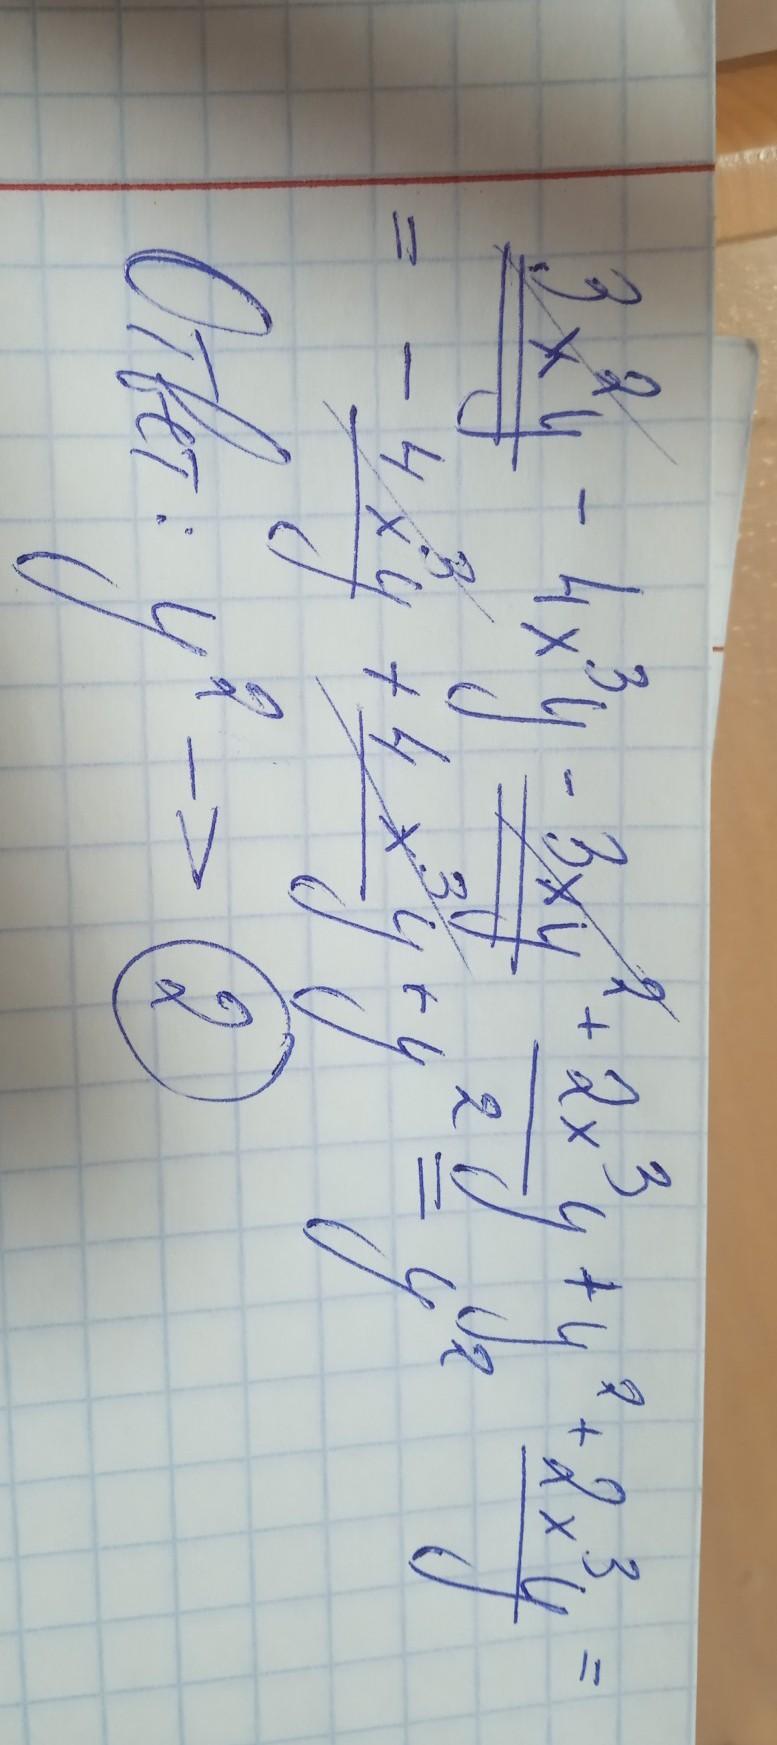 3x²y - 4x³y - 3x²y + 2x³y + y² + 2x³y =
= - 4x³y + 4x³y + y² = y²
Ответ: y² -> 2